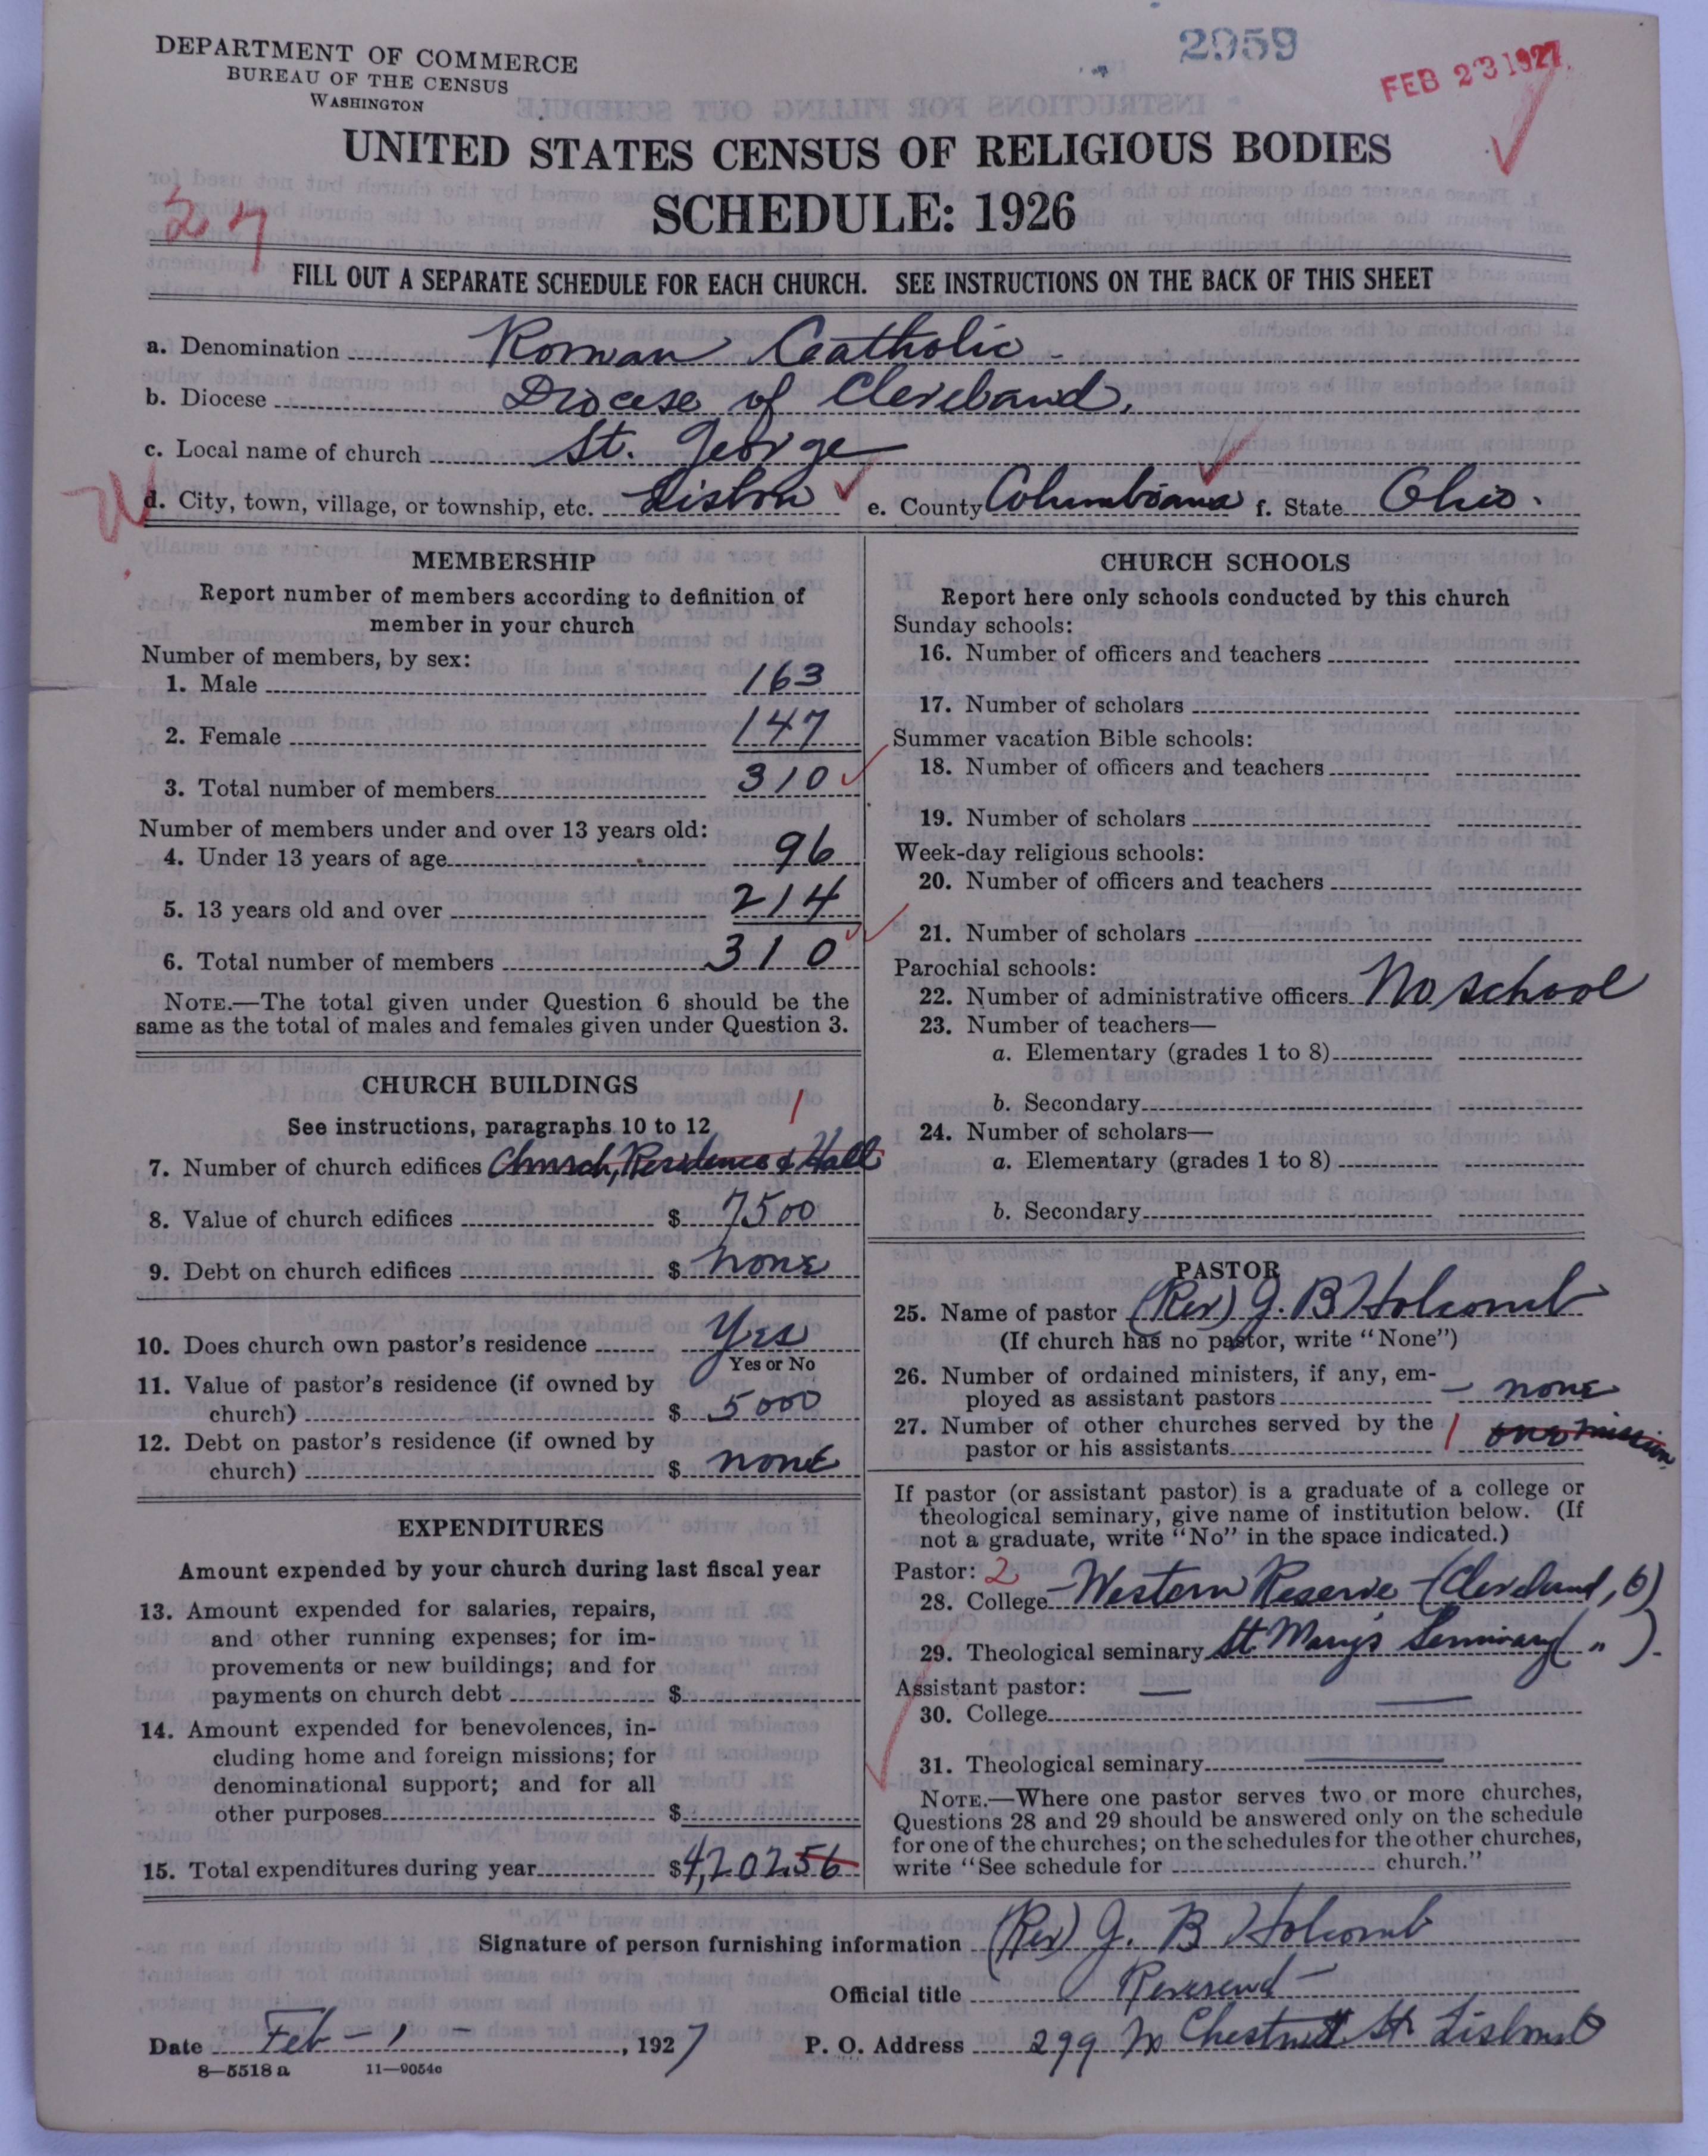 DEPARTMENT OF COMMERCE
BUREAU OF THE CENSUS
WASHINGTON
2959
FEB 23 1927
UNITED STATES CENSUS OF RELIGIOUS BODIES
SCHEDULE: 1926
27
FILL OUT A SEPARATE SCHEDULE FOR EACH CHURCH. SEE INSTRUCTIONS ON THE BACK OF THIS SHEET
a. Denomination Roman Catholic
b. Diocese Diocese of Cleveland,
c. Local name of church St. George
d. City, town, village, or township, etc. Lisbon e. County Columbiana f. State Ohio.
MEMBERSHIP
Report number of members according to definition of
member in your church
Number of members, by sex:
1. Male 163
2. Female 147
3. Total number of members 310
Number of members under and over 13 years old:
4. Under 13 years of age 96
5. 13 years old and over 214
6. Total number of members 310
NOTE.—The total given under Question 6 should be the
same as the total of males and females given under Question 3.
CHURCH BUILDINGS
See instructions, paragraphs 10 to 12
1
7. Number of church edifices Church, Residence & Hall
8. Value of church edifices $ 7500
9. Debt on church edifices $ none
10. Does church own pastor's residence Yes
Yes or No
11. Value of pastor's residence (if owned by
church) $ 5000
12. Debt on pastor's residence (if owned by
church) $ none
EXPENDITURES
Amount expended by your church during last fiscal year
13. Amount expended for salaries, repairs,
and other running expenses; for im-
provements or new buildings; and for
payments on church debt $
14. Amount expended for benevolences, in-
cluding home and foreign missions; for
denominational support; and for all
other purposes $
15. Total expenditures during year $4,202.56
CHURCH SCHOOLS
Report here only schools conducted by this church
Sunday schools:
16. Number of officers and teachers
17. Number of scholars
Summer vacation Bible schools:
18. Number of officers and teachers
19. Number of scholars
Week-day religious schools:
20. Number of officers and teachers
21. Number of scholars
Parochial schools:
22. Number of administrative officers No school
23. Number of teachers—
a. Elementary (grades 1 to 8)
b. Secondary
24. Number of scholars—
a. Elementary (grades 1 to 8)
b. Secondary
PASTOR
25. Name of pastor (Rev) J. B Holcomb
(If church has no pastor, write "None")
26. Number of ordained ministers, if any, em-
ployed as assistant pastors — none
27. Number of other churches served by the
pastor or his assistants 1 one mission
If pastor (or assistant pastor) is a graduate of a college or
theological seminary, give name of institution below. (If
not a graduate, write "No" in the space indicated.)
Pastor: 2
28. College — Western Reserve — (Cleveland, O)
29. Theological seminary St Mary's Seminary ( " ).
Assistant pastor: —
30. College —
31. Theological seminary —
NOTE.—Where one pastor serves two or more churches,
Questions 28 and 29 should be answered only on the schedule
for one of the churches; on the schedules for the other churches,
write "See schedule for church."
Signature of person furnishing information (Rev) J. B Holcomb
Official title Reverend —
Date Feb - 1 - , 1927 P. O. Address 299 W Chestnut St. Lisbon O
8—5518 a 11—9054c